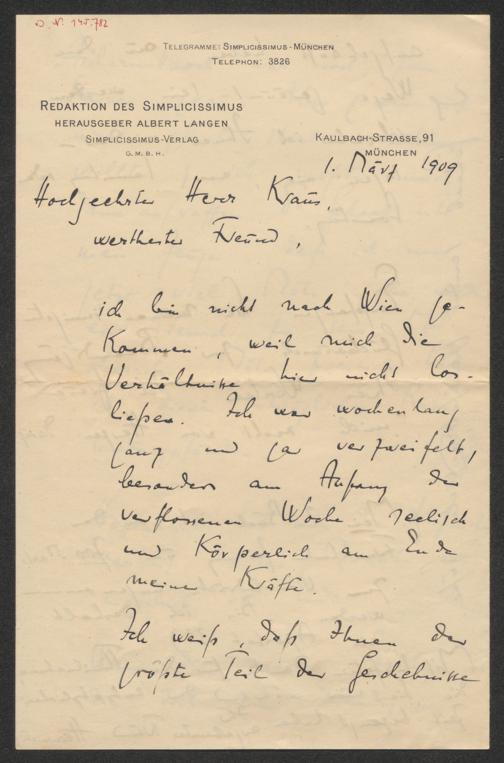 J. N. 145.782
TELEGRAMME: SIMPLICISSIMUS-MÜNCHEN
TELEPHON: 3826
REDAKTION DES SIMPLICISSIMUS
HERAUSGEBER ALBERT LANGEN
SIMPLICISSIMUS-VERLAG
G. M. B. H.
KAULBACH-STRASSE, 91
MÜNCHEN
1. März 1909
Hochgeehrter Herr Kraus,
werthester Freund,
ich bin nicht nach Wien ge-
kommen, weil mich die
Verhältnisse hier nicht los-
ließen. Ich war wochenlang
ganz und gar verzweifelt,
besonders am Anfang der
verflossenen Woche seelisch
und körperlich am Ende
meiner Kräfte.
Ich weiß, daß Ihnen der
größte Teil der Geschehnisse